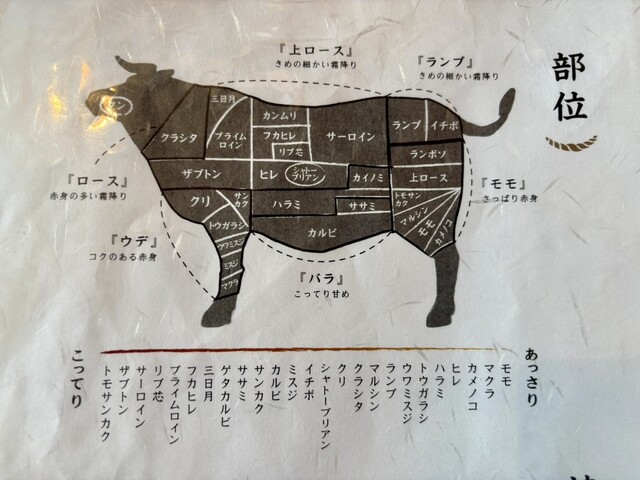 部位
『上ロース』
きめの細かい霜降り
『ランプ』
きめの細かい霜降り
『ロース』
赤身の多い霜降り
『ウデ』
コクのある赤身
『バラ』
こってり甘め
『モモ』
さっぱり赤身
タン
クラシタ
三日月
プライム
ロイン
カンムリ
フカヒレ
リブ芯
サーロイン
ランプ
イチボ
ランボソ
ザブトン
ヒレ
シャトー
ブリアン
カイノミ
上ロース
クリ
サン
カク
ハラミ
ササミ
トモサン
カク
マルシン
モモ
カメノコ
トウガラシ
ウワミスジ
ミスジ
マクラ
カルビ
あっさり
モモ
マクラ
カメノコ
ヒレ
ハラミ
トウガラシ
ウワミスジ
ランプ
マルシン
クラシタ
クリ
シャトーブリアン
イチボ
ミスジ
カルビ
サンカク
ササミ
ゲタカルビ
三日月
フカヒレ
プライムロイン
リブ芯
サーロイン
ザブトン
トモサンカク
こってり